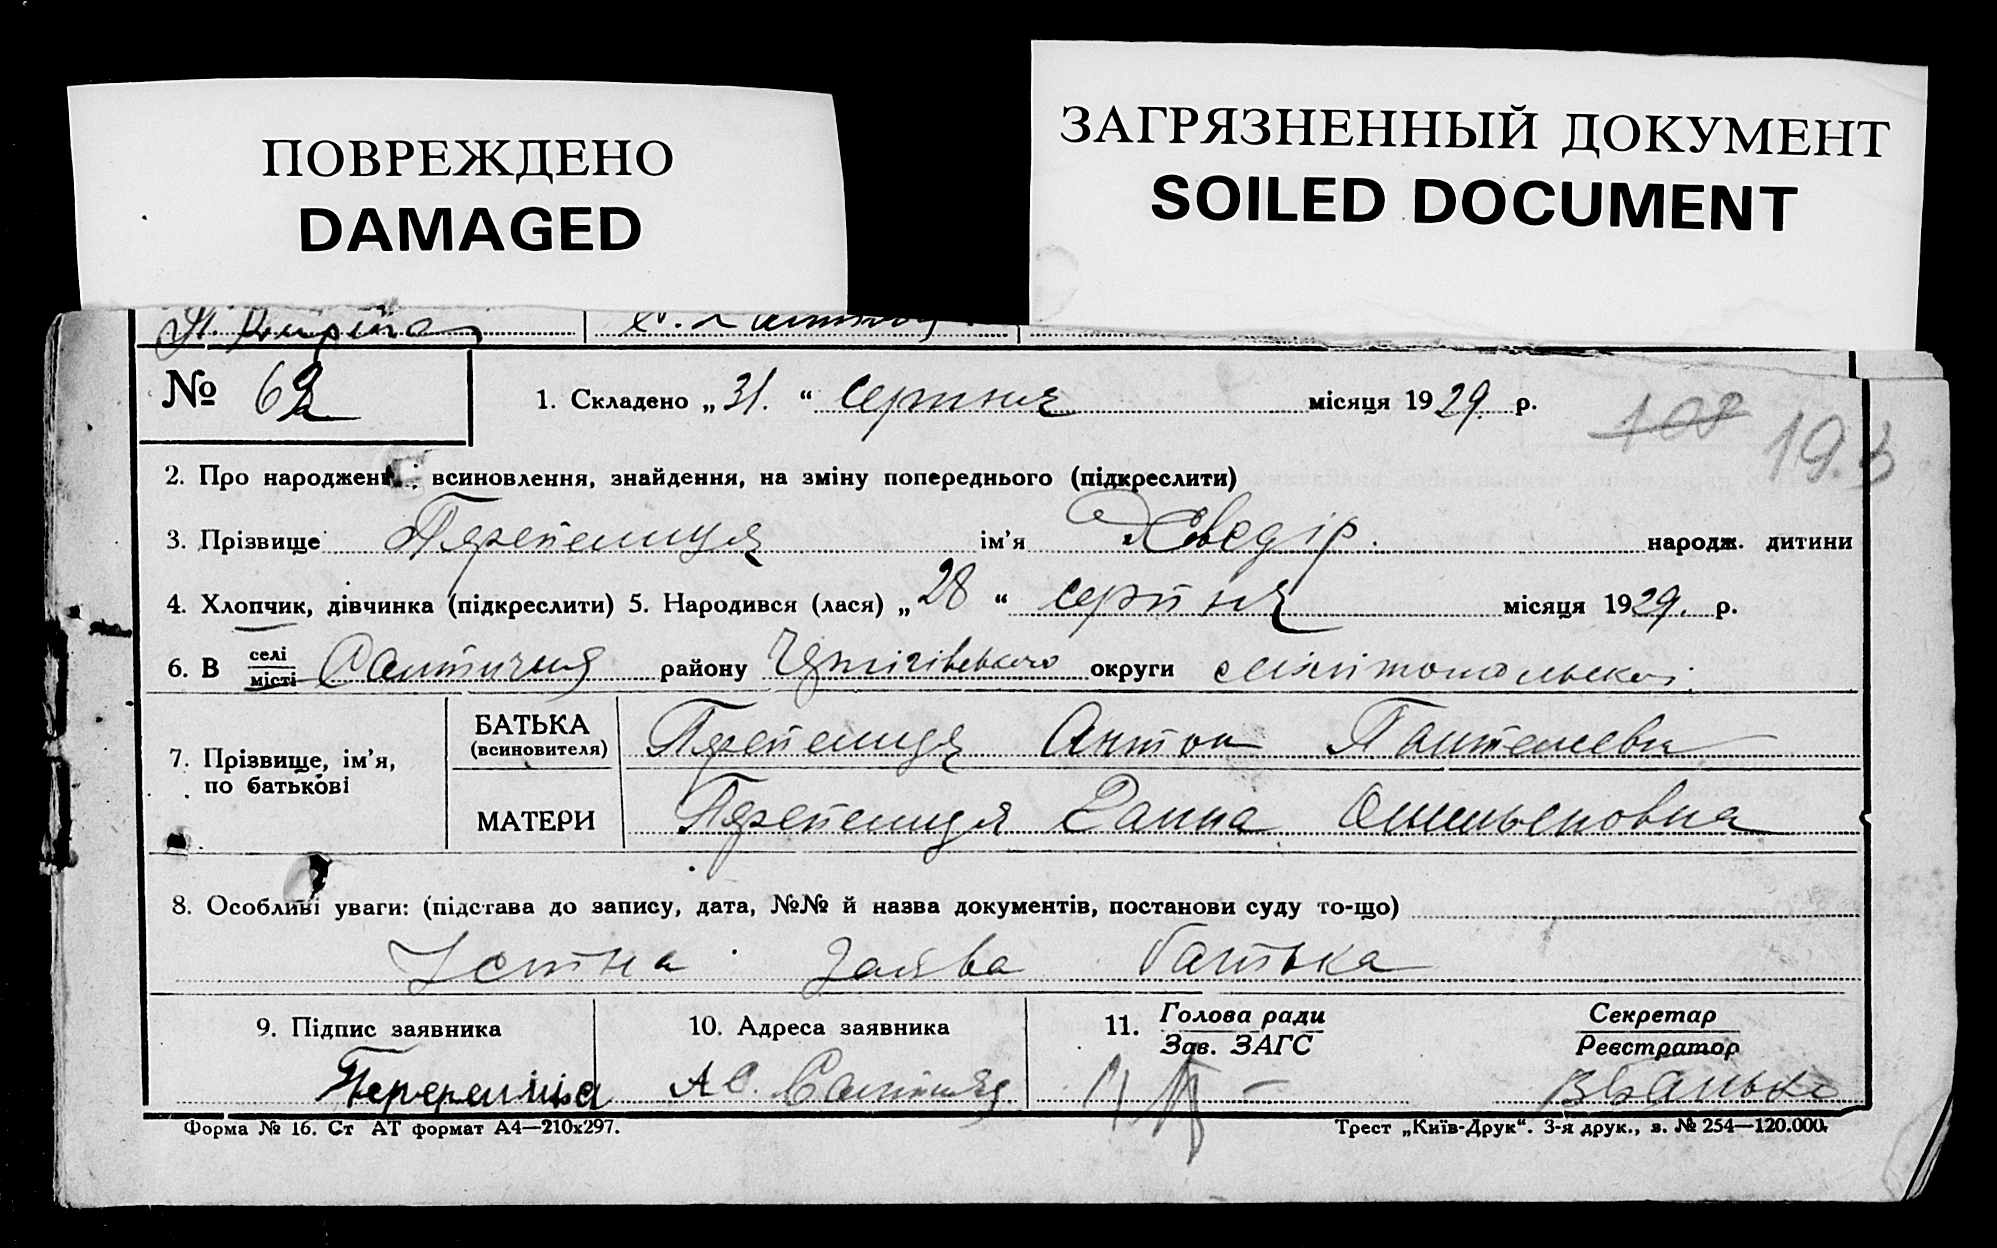 ПОВРЕЖДЕНО
DAMAGED
ЗАГРЯЗНЕННЫЙ ДОКУМЕНТ
SOILED DOCUMENT
№ 62
1. Складено „31.“ серпня місяця 1929. р.
108 19.
2. Про народженн всиновлення, знайдення, на зміну попереднього (підкреслити)
3. Прізвище Перепелиця ім’я Хведір. народж. дитини
4. Хлопчик, дівчинка (підкреслити) 5. Народився (лася) „28“ серпня місяця 1929. р.
6. В селі місті району округи
7. Прізвище, ім’я, по батькові
БАТЬКА (всиновителя) Перепелиця Антон
МАТЕРИ Перепелиця Ганна
8. Особливі уваги: (підстава до запису, дата, №№ й назва документів, постанови суду то-що)
Устна заява батька
9. Підпис заявника 10. Адреса заявника 11. Голова ради Секретар
Зав. ЗАГС Реєстратор
Форма № 16. Ст АТ формат А4—210x297. Трест „Київ-Друк“. 3-я друк., з. № 254—120.000.